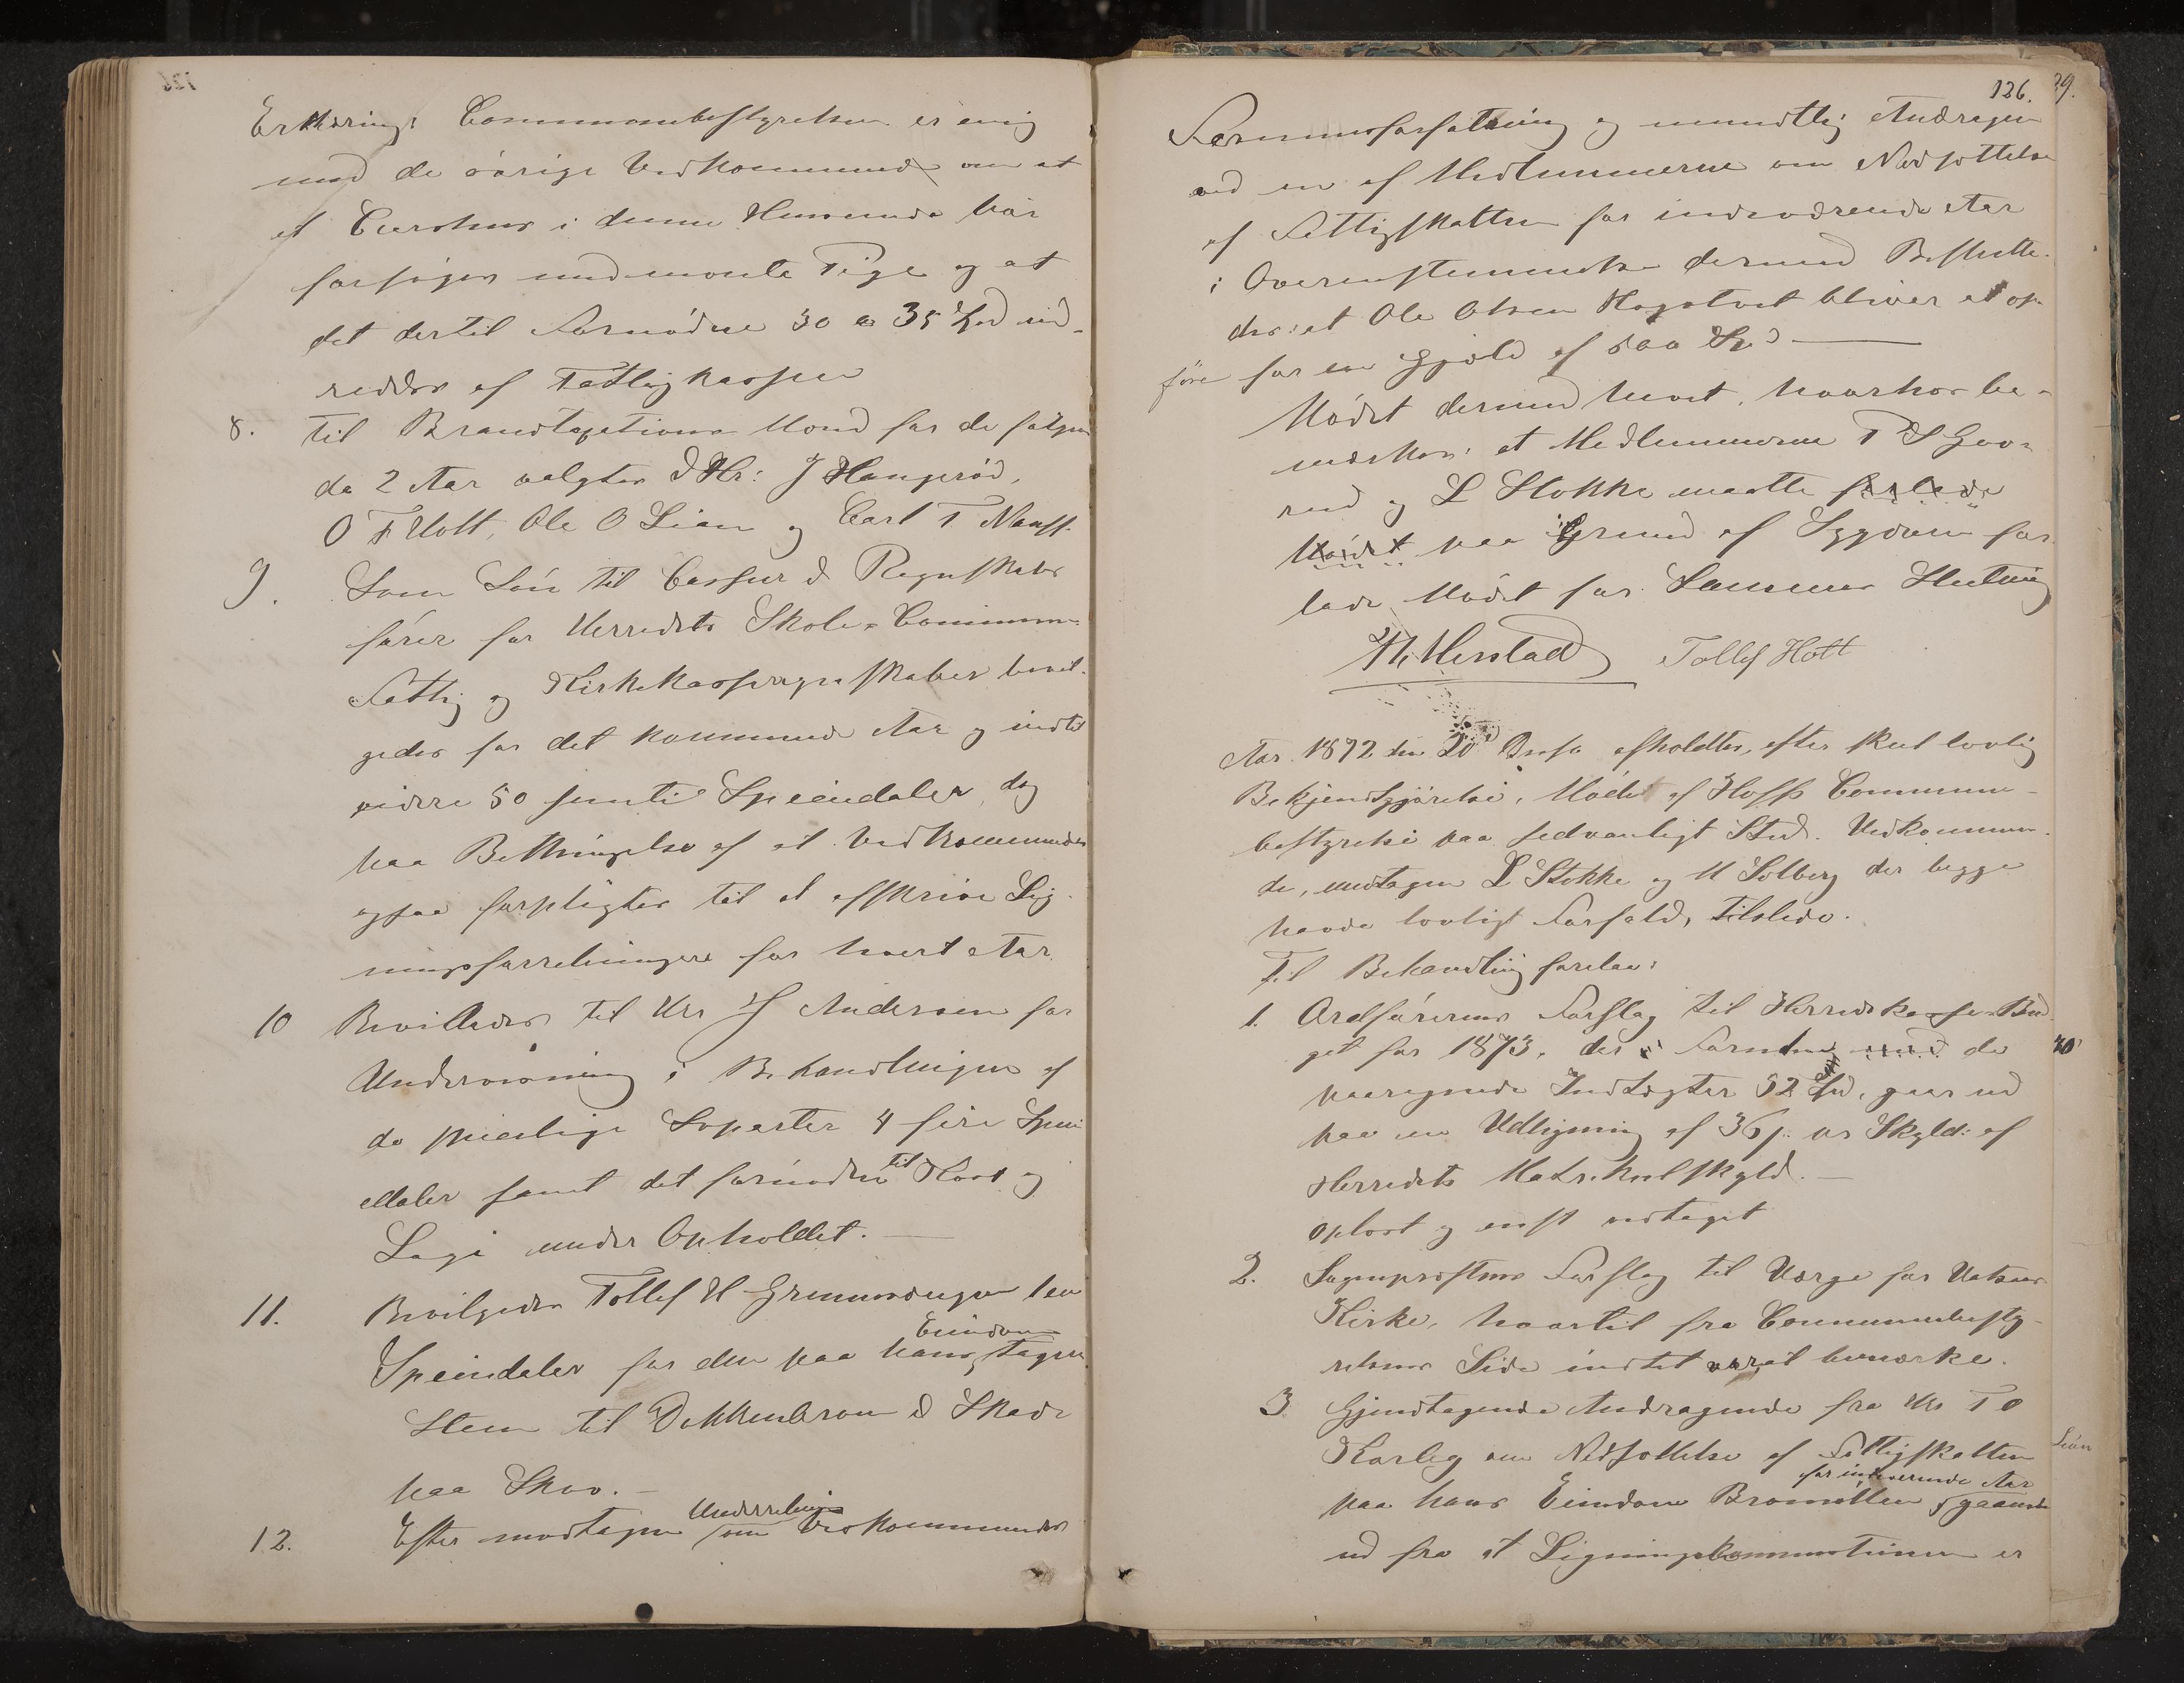 Erklæring: Communebestyrelsen er enig
med de övrige Vedkommende om at
et Cursteds i denne Henseende bör
forsöges med omtalte Pige og at
det dertil Fornødne 30 a 35 Spd ud-
redes af Fattigkassen
8. Til Brandtaxations Mænd for de fölgen
de 2 Aar valgtes D Hr: J Haugeröd,
O T Hott, Ole O Lian og Carl T.
9. Som Lön til Casserer & Regnskabs
förer for Herredets Skole- Commune-
Fattig og Kirkekasseregnskaber bevil-
gedes for det kommende Aar og indtil
videre 50 femti Speciedaler, dog
paa Betingelse af at Vedkommende
ogsaa forpligtes til at afskrive Lig-
ningsforretningene for hvert Aar.
10 Bevilledes til Mr J Andersen for
Underviisning i Behandlingen af
de Meslige Soparter 4 fire Speci
edaler samt det fornödne til Kost og
Logi under Opholdet.
11. Bevilgedes Tollef H Grimsrudengen 1 en
Speciedaler for den paa hans Eiendom tagen
Steen til Dokkenbroen & Skade
paa Skov.
12. Efter modtagen Underretning om Vedkommendes
126.
29.
Formuesforfatning og mundtlig Andragen
ved en af Medlemmerne om Nedsættelse
af Fattigskatten for indeværende Aar
i Overensstemmelse dermed Beslutte-
des: at Ole Olsen Hagstvet bliver at op-
före for en Gjæld af 500 Spd
Mödet dermed hævet, hvorhos be-
mærkes: at Medlemmerne T S Gaa-
rud og L Stokke maatte forlade
Mödet paa Grund af Sygdom for-
lade Mödet før Sammes Slutning
Th. Herstad Tollef Hott
Aar 1872 den 20 Decbr afholdtes, efter skeet lovlig
Bekjendtgjörelse, Möde af Hoffs Commune-
bestyrelse paa sedvanligt Sted. Vedkommen-
de, undtagen L Stokke og M Solberg der begge
havde lovligt Forfald, tilstede.
Til Behandling forelaa:
1. Ordförerens Forslag til Herredskasse-Bud-
get for 1873, der i Forening med de
paaregnede Indtægter 52 Spd, gaar ud
paa en Udligning af 36 s: pr Skyld: af
Herredets Matrikulskyld.
oplæst og enst vedtaget
2. Sognepræstens Forslag til Værge for Vatnaas
Kirke, hvortil fra Communebesty-
relsens Side intet var at bemærke.
3 Gjendtagende Andragende fra Mr T O
Korleg om Nedsættelse af Fattigskatten
for indeværende Aar
paa hans Eiendom Bromöllen, gaaende
ud fra at Ligningskommisionen er